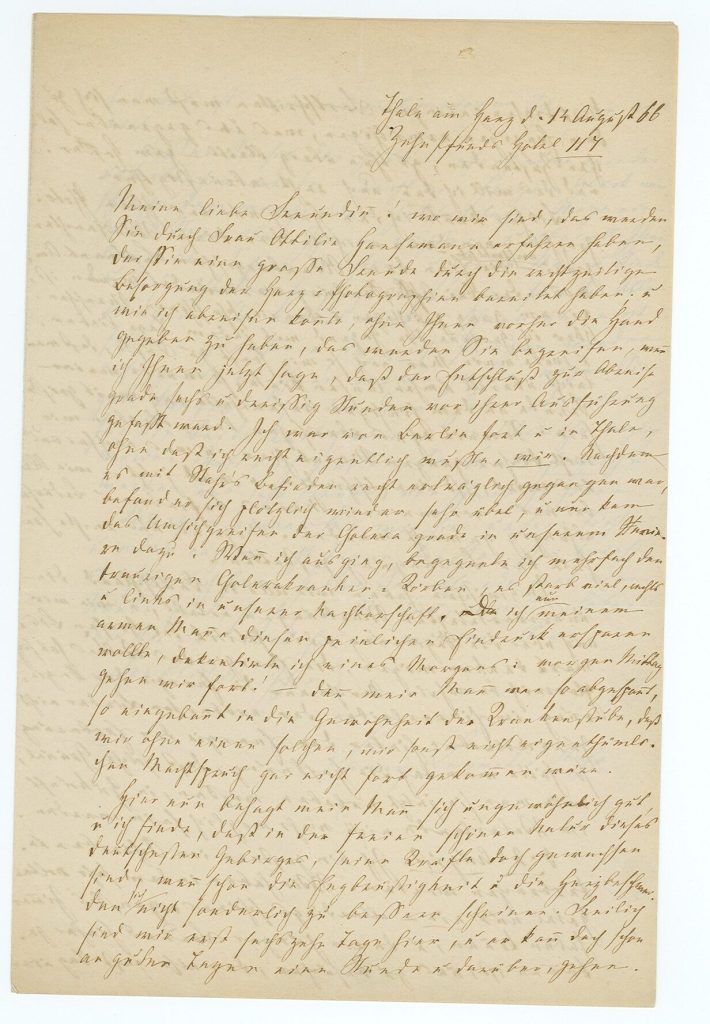 Thale am Harz d. 14 August 66
Zehnpfunds Hotel 117
Meine liebe Freundin! wo wir sind, das werden
Sie durch Frau Ottilie Hansemann erfahren haben,
der Sie eine große Freude durch die rechtzeitige
Besorgung der Harz-Photographien bereitet haben. u
wie ich abreisen konte, ohne Ihnen vorher die Hand
gegeben zu haben, das werden Sie begreifen, wenn
ich Ihnen jetzt sage, daß der Entschluß zur Abreise
grade sechs u dreißig Stunden vor ihrer Ausführung
gefaßt ward. Ich war von Berlin fort u in Thale,
ohne daß ich recht eigentlich wußte, wie. Nachdem
es mit Stahrs Befinden recht erträglich gegangen war,
befand er sich plötzlich wieder sehr übel, u nun kam
das Umsichgreifen der Cholera grade in unserem Stadtvier-
re dazu. Wenn ich ausging, begegnete ich mehrfach den
traurigen Cholerakranken-Körben, es starb viel, rechts
u links in unserer Nachbarschaft. Da ich nun meinem
armen Mann diesen peinlichen Eindruck ersparen
wollte, dekretirte ich eines Morgens: morgen Mittag
gehen wir fort! — denn mein Mann war so abgespannt,
so eingebannt in die Gewohnheit der Krankenstube, daß
wir ohne einen solchen, mir sonst nicht eigenthümli-
chen Machtspruch gar nicht fort gekommen wären.
Hier nun behagt mein Mann sich ungewöhnlich gut,
u ich finde, daß in der freien schönen Natur dieses
deutschesten Gebirges, seine Kräfte doch gewachsen
sind, wenn schon die Engbrüstigkeit u die Herzbeschwer-
den sich nicht sonderlich zu bessern scheinen. Freilich
sind wir erst sechszehn Tage hier, u er kann doch schon
an guten Tagen eine Stunde u darüber, gehen.